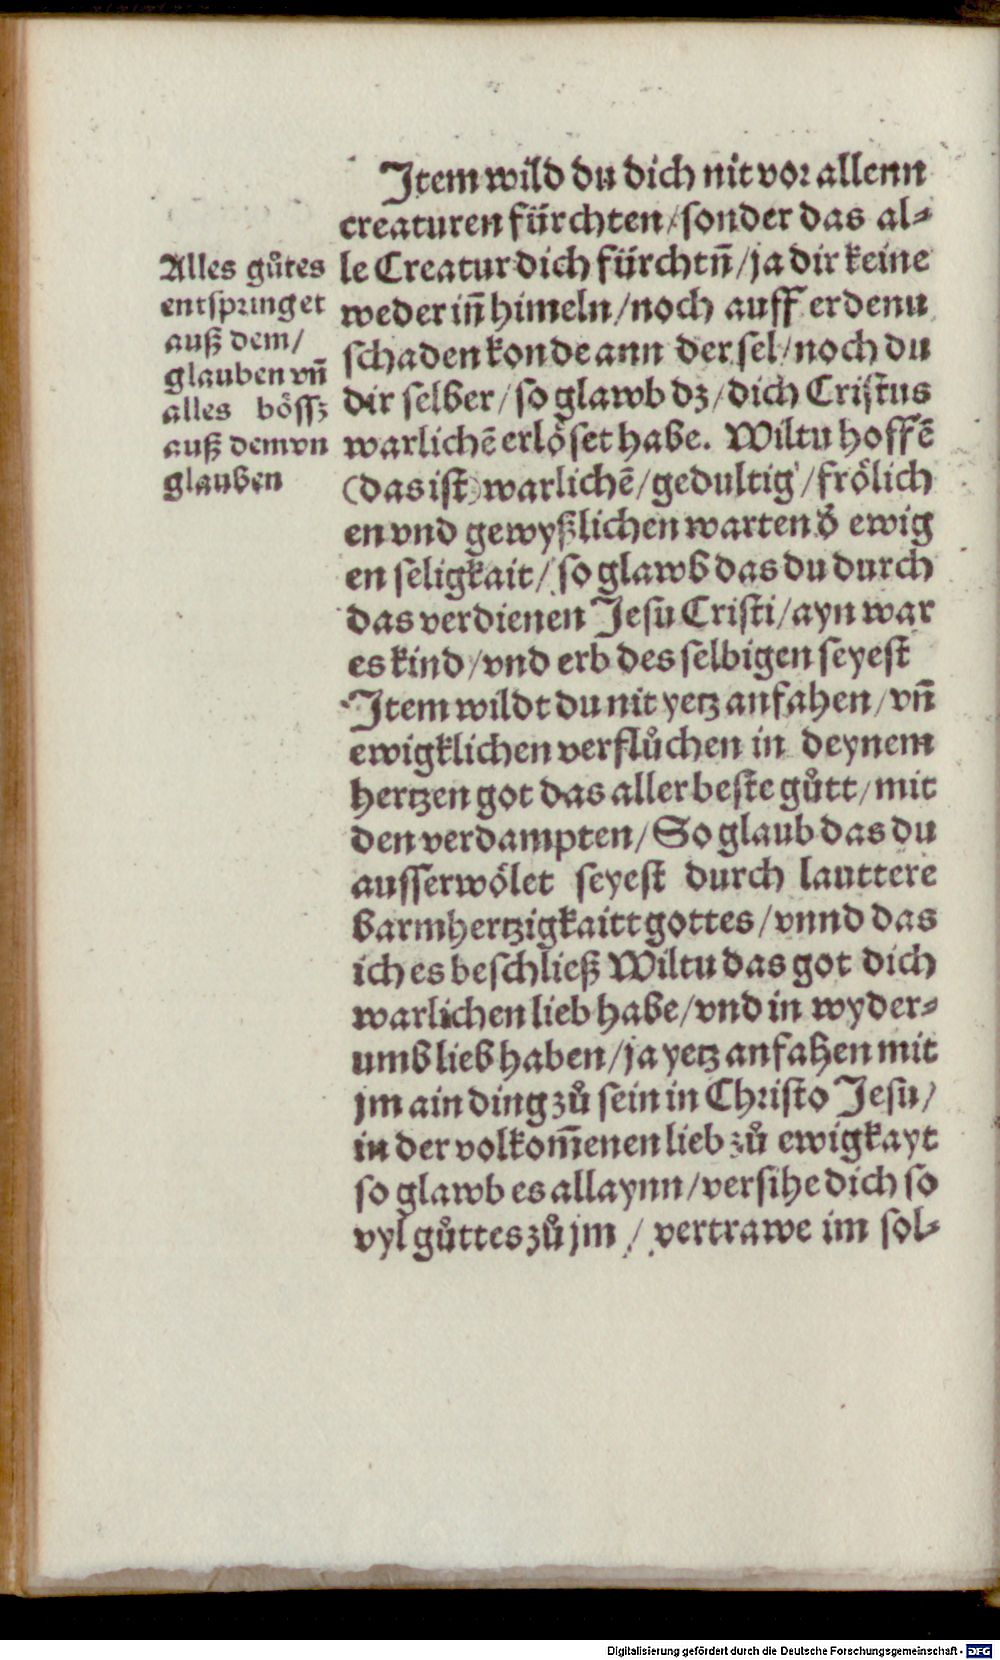 Item wild du dich nit vor allenn
creaturen fürchten/sonder das al-
le Creatur dich fürchtñ/ja dir keine
weder iñ himeln/noch auff erdenn
schaden konde ann der sel/noch du
dir selber/so glawb dz/dich Cristus
warlichē erlöset habe. Wiltu hoffē
(das ist) warlichē/gedultig/frölich
en vnd gewyßlichen warten d̕ ewig
en seligkait/so glawb das du durch
das verdienen Jesu Cristi/ayn war
es kind/vnd erb des selbigen seyest
Item wildt du nit yetz anfahen/vñ
ewigklichen verflůchen in deynem
hertzen got das aller beste gůtt/mit
den verdampten/So glaub das du
ausserwölet seyest durch lauttere
barmhertzigkaitt gottes/vnnd das
ich es beschließ Wiltu das got dich
warlichen lieb habe/vnd in wyder-
umb lieb haben/ja yetz anfahen mit
jm ain ding zů sein in Christo Jesu/
in der volkom̄enen lieb zů ewigkayt
so glawb es allaynn/versihe dich so
vyl gůttes zů jm/vertrawe im sol-
Alles gůtes
entspringet
auß dem/
glauben vñ
alles bössz
auß dem vn
glauben
Digitalisierung gefördert durch die Deutsche Forschungsgemeinschaft - DFG